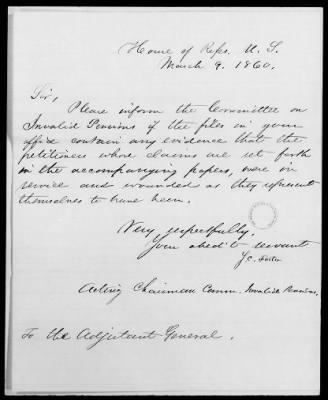 House of Reps. U. S.
March 9. 1860.
Sir,
Please inform the Committee on
Invalid Pensions if the files in your
office contain any evidence that the
petitioners whose claims are set forth
in the accompanying papers, were in
service and wounded as they represent
themselves to have been.
Very, respectfully,
Your obedt servant
Acting Chairman Comm. Invalid Pensions.
To the Adjutant General.